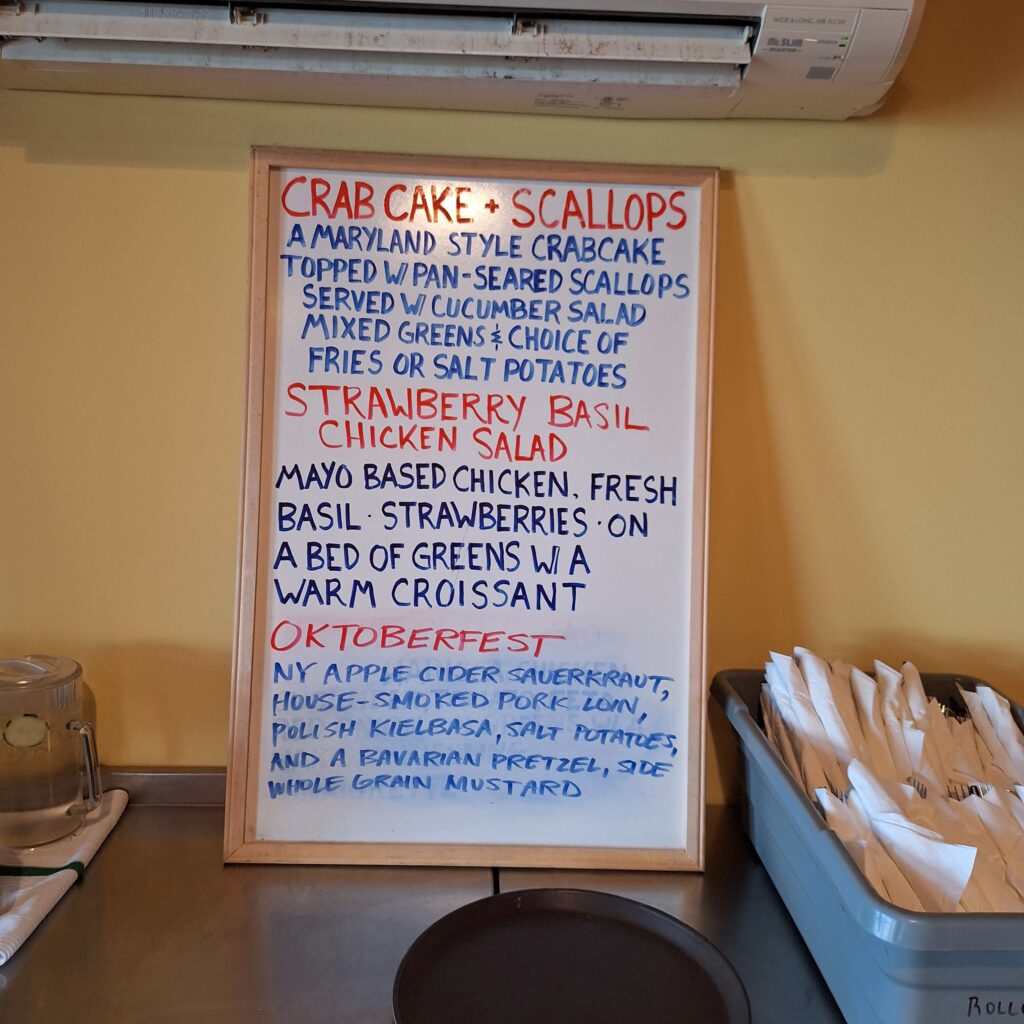 WIDE & LONG AIR FLOW
MR.SLIM
INVERTER
CRAB CAKE + SCALLOPS
A MARYLAND STYLE CRABCAKE
TOPPED W/ PAN-SEARED SCALLOPS
SERVED W/ CUCUMBER SALAD
MIXED GREENS & CHOICE OF
FRIES OR SALT POTATOES
STRAWBERRY BASIL
CHICKEN SALAD
MAYO BASED CHICKEN, FRESH
BASIL · STRAWBERRIES · ON
A BED OF GREENS W/ A
WARM CROISSANT
OKTOBERFEST
NY APPLE CIDER SAUERKRAUT,
HOUSE-SMOKED PORK LOIN,
POLISH KIELBASA, SALT POTATOES,
AND A BAVARIAN PRETZEL, SIDE
WHOLE GRAIN MUSTARD